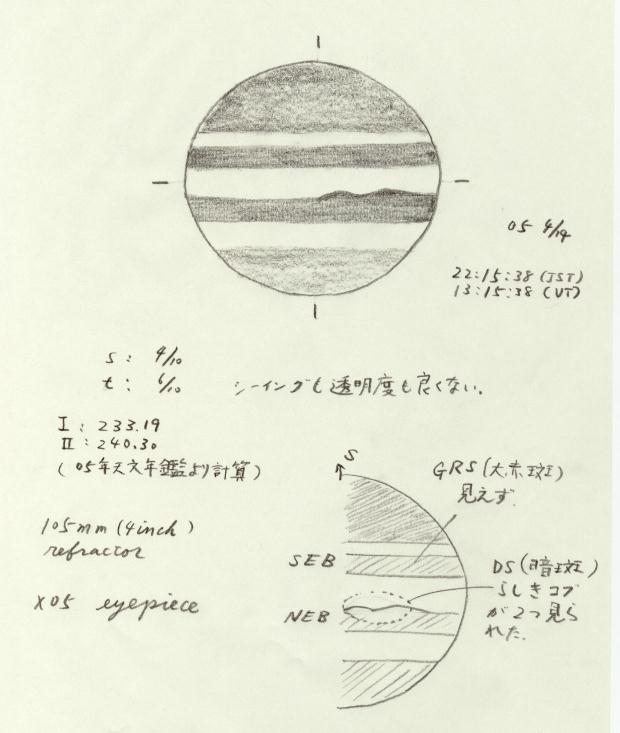 05 4/19
22:15:38 (JST)
13:15:38 (UT)
s: 4/10
t: 6/10 シーイングも透明度も良くない。
I: 233.19
II: 240.30
(05年天文年鑑より計算)
105mm (4inch)
refractor
X05 eyepiece
S
GRS(大赤斑)
見えず.
SEB
DS(暗斑)
らしきコブ
が2つ見ら
れた.
NEB